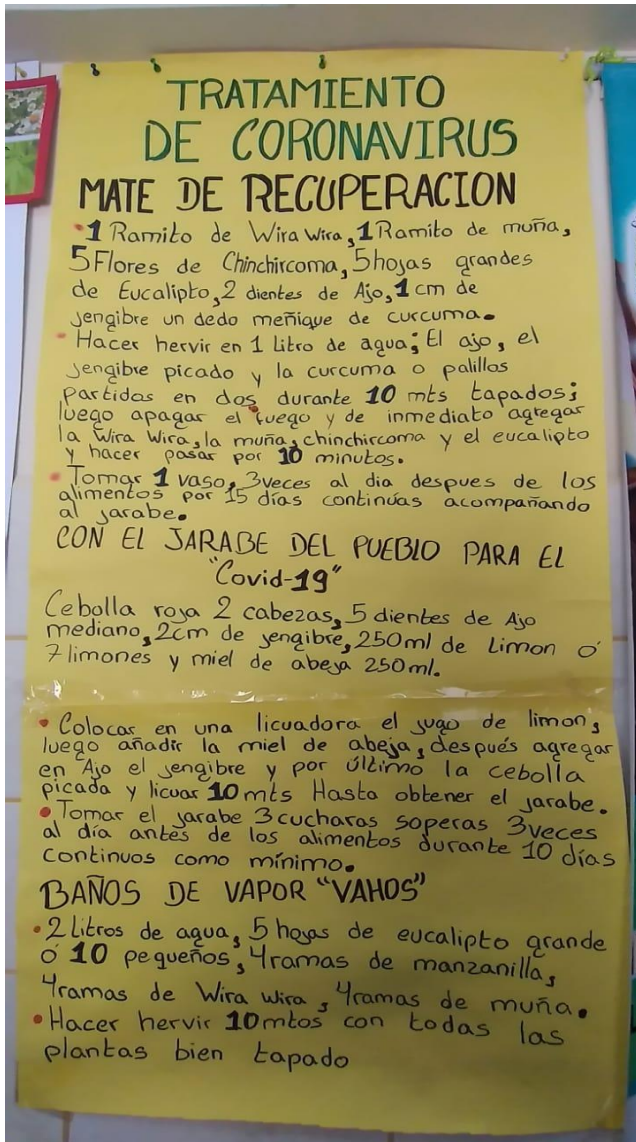 TRATAMIENTO
DE CORONAVIRUS
MATE DE RECUPERACION
• 1 Ramito de Wira Wira, 1 Ramito de muña,
5 Flores de Chinchircoma, 5 hojas grandes
de Eucalipto, 2 dientes de Ajo, 1 cm de
jengibre un dedo meñique de curcuma.
• Hacer hervir en 1 Litro de agua; El ajo, el
jengibre picado y la curcuma o palillos
partidos en dos durante 10 mts tapados;
luego apagar el fuego y de inmediato agregar
la Wira Wira, la muña, chinchircoma y el eucalipto
y hacer pasar por 10 minutos.
• Tomar 1 vaso, 3 veces al dia despues de los
alimentos por 15 días continúas acompañando
al jarabe.
CON EL JARABE DEL PUEBLO PARA EL
"Covid-19"
Cebolla roja 2 cabezas, 5 dientes de Ajo
mediano, 2cm de jengibre, 250ml de Limon ó
7 limones y miel de abeja 250ml.
• Colocar en una licuadora el jugo de limon,
luego añadir la miel de abeja, después agregar
en Ajo el jengibre y por último la cebolla
picada y licuar 10 mts Hasta obtener el jarabe.
• Tomar el jarabe 3 cucharas soperas 3 veces
al día antes de los alimentos durante 10 días
continuos como mínimo.
BAÑOS DE VAPOR "VAHOS"
• 2 Litros de agua, 5 hojas de eucalipto grande
ó 10 pequeños, 4 ramas de manzanilla,
4 ramas de Wira Wira, 4 ramas de muña.
• Hacer hervir 10 mtos con todas las
plantas bien tapado